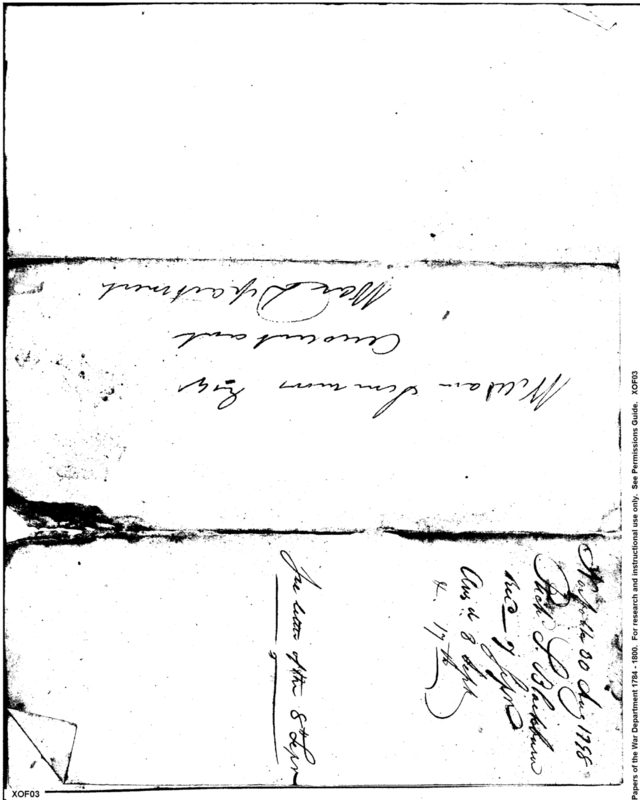 William Simmons Esqr
Accountant
War Department
Norfolk 30 Aug 1798
Richd S. Blackburn
Recd 7 Sepr
Ans'd 8 Sept
& 17th
See letter of the 8th Sepr
XOF03
Papers of the War Department 1784 - 1800. For research and instructional use only. See Permissions Guide. XOF03